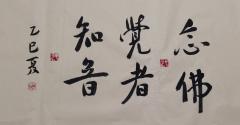 念佛
覺者
知音
乙巳夏